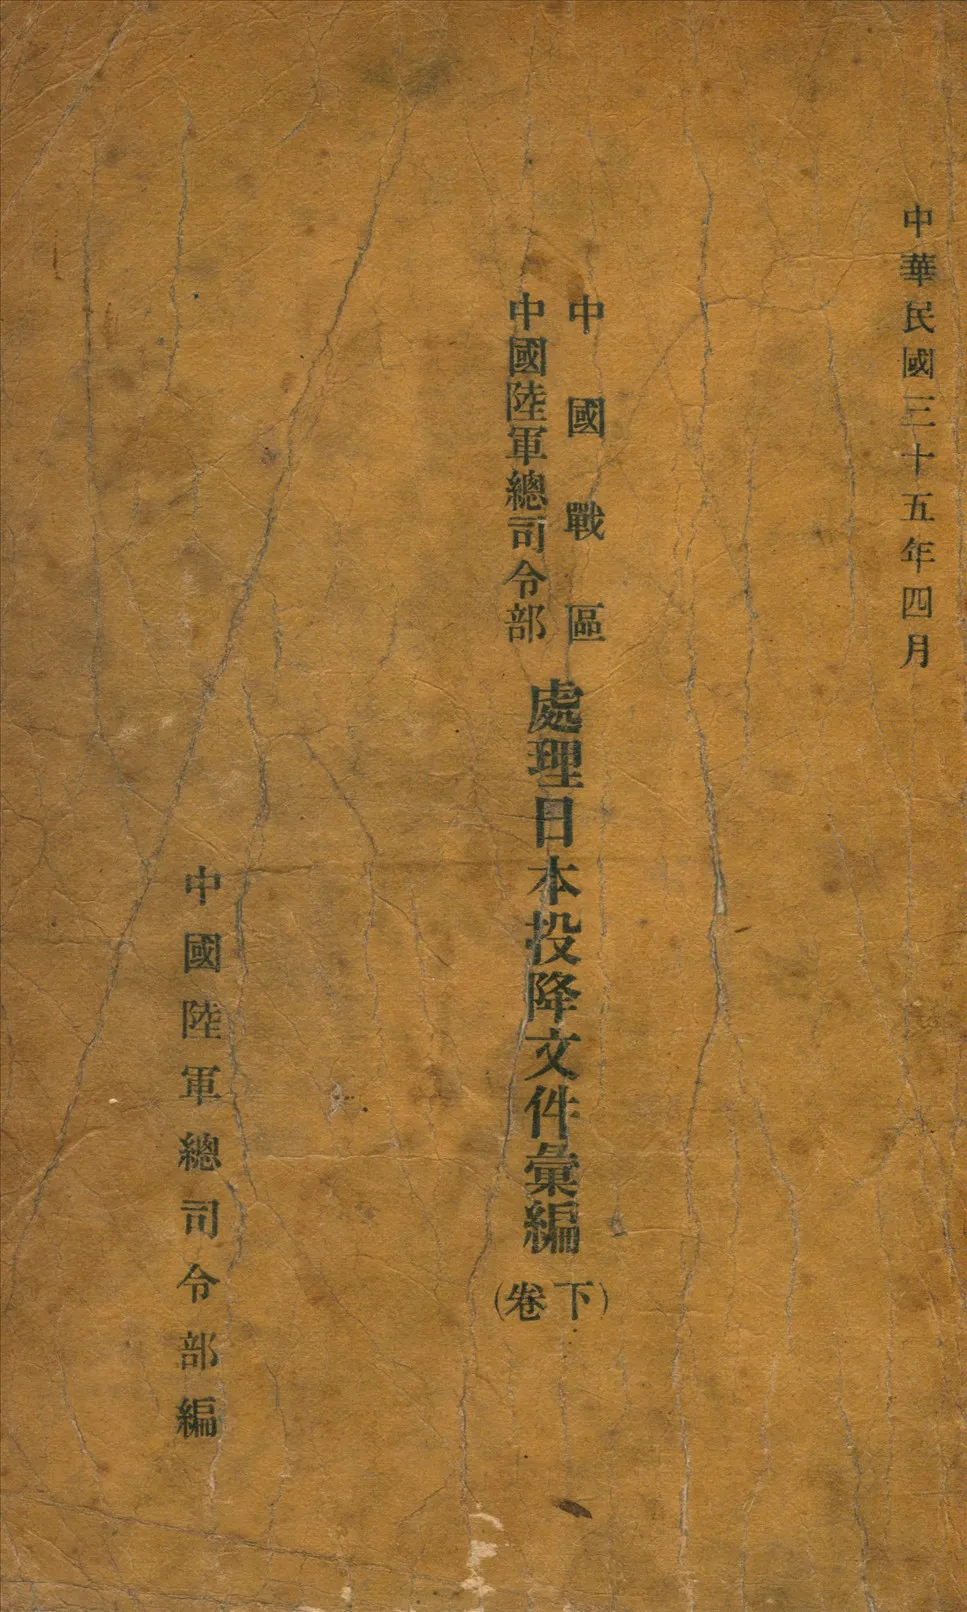 中華民國三十五年四月
中國戰區
中國陸軍總司令部
處理日本投降文件彙編
(下卷)
中國陸軍總司令部編